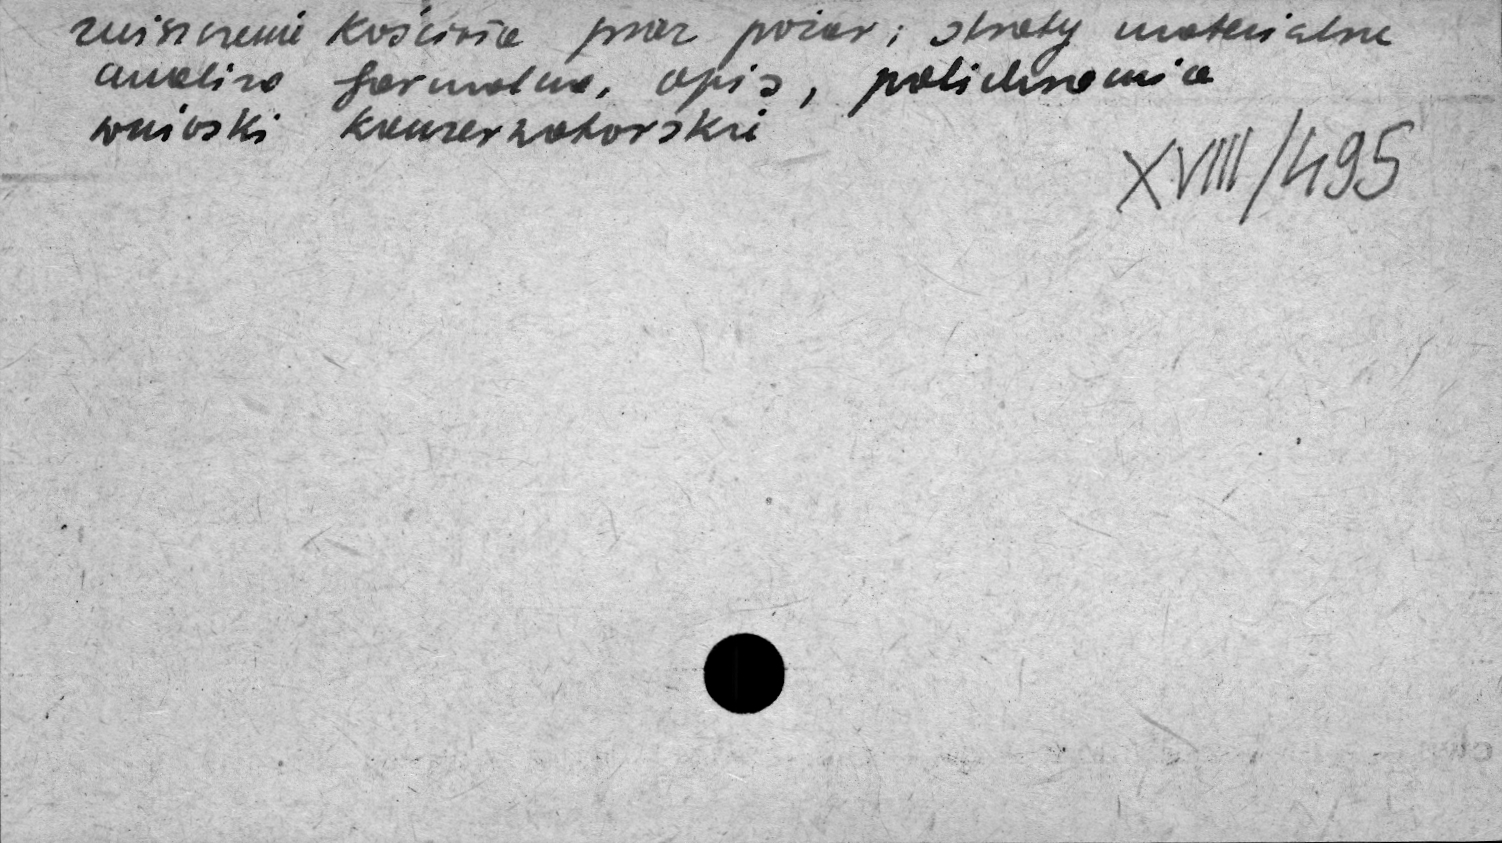 zniszczenie kościoła przez pożar; straty materialne
analiza formalna, opis, polichromia
wnioski konserwatorskie
XVIII/495